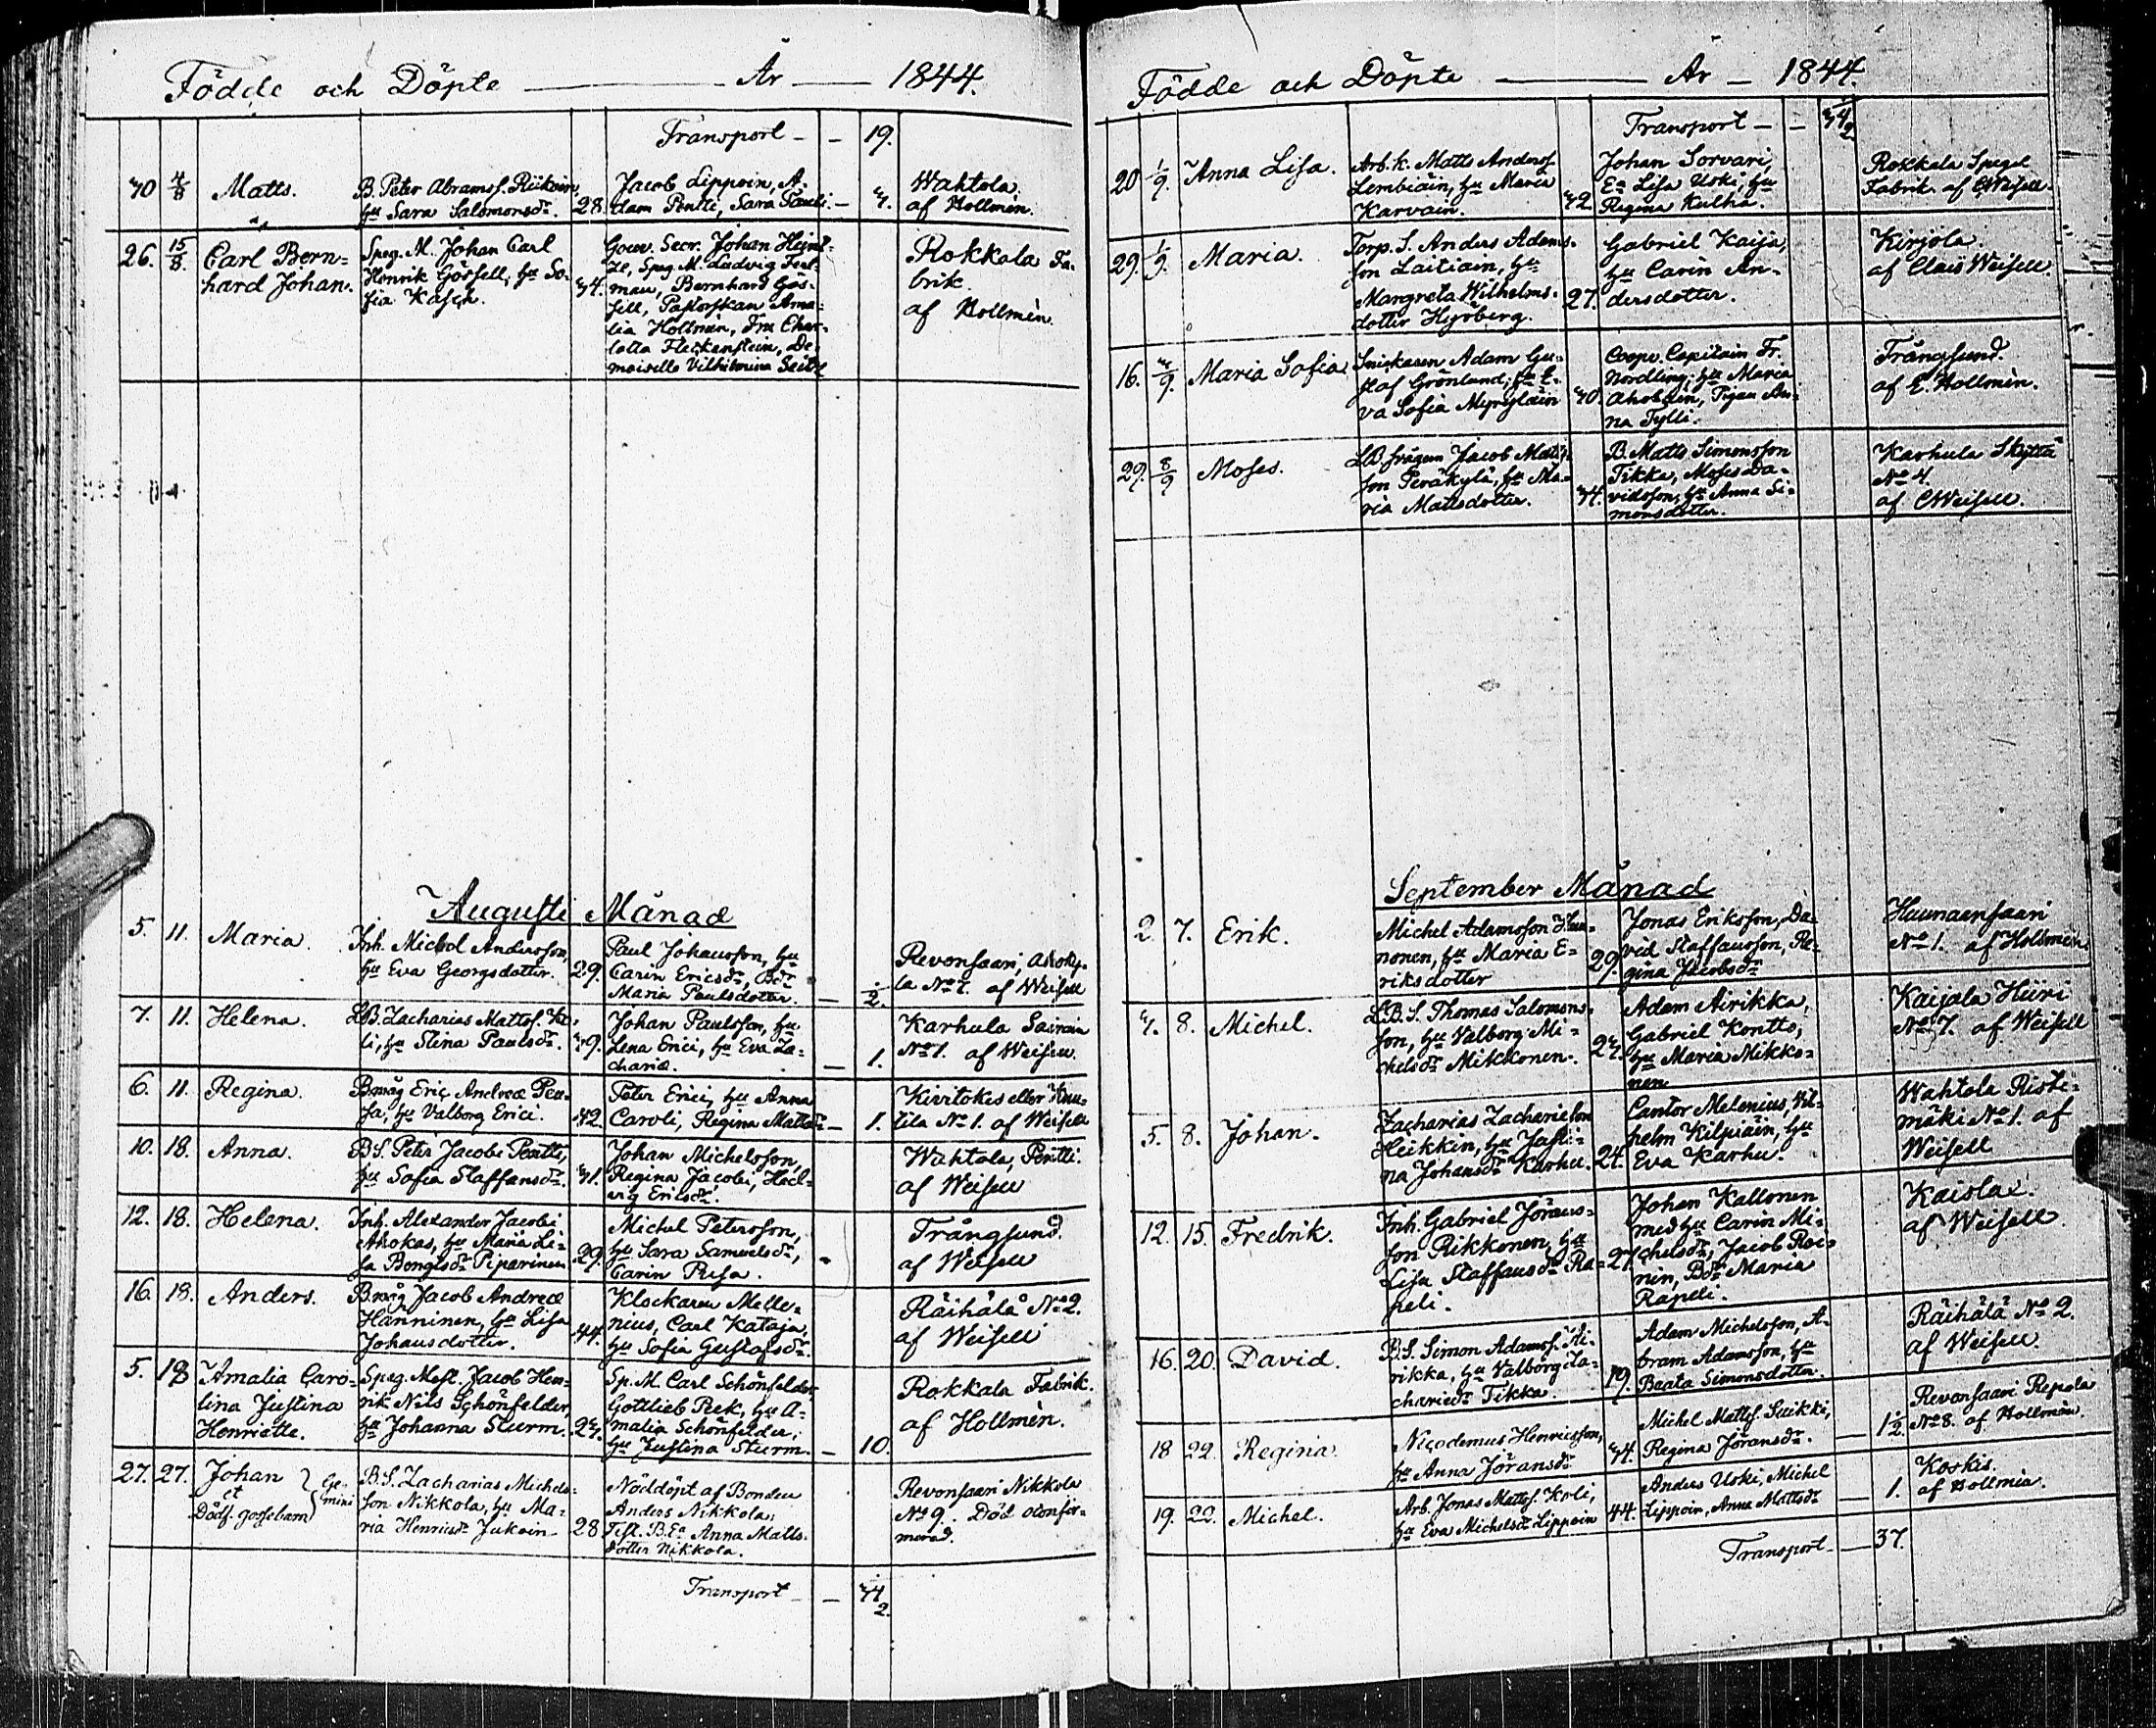 Födde och Döpte — År — 1844.
Transport — — 19.
30 4/8 Matts. B. Peter Abramss. Riikoin, hu Sara Salomonsdr. 28. Jacob Lippoin, Adam Pentti, Sara Pauli. — 3. Wahtola. af Hollmén.
26. 15/8. Carl Bernhard Johan. Speg. M. Johan Carl Henrik Görsell, hu Sofia 34. Gouv. Secr. Johan Heintze, Speg. M. Ludvig Bernhard Pastorskan Amalia Hollmén, Fru Charlotta Fleckenstein, Demoiselle Vilhelmina Seitze Rokkala Fabrik. af Hollmén.
Augusti Månad
5. 11. Maria. Inh. Michel Andersson, hu Eva Georgsdotter. 29. Paul Johansson, hu Carin Ericsdr, Bdr Maria Paulsdotter. — 1/2. Revonsaari, la No 7. af Weisell
7. 11. Helena. LB. Zacharias Mattss. hu Stina Paulsdr. 39. Johan Paulsson, hu Lena Erici, hu Eva Zachariæ. — 1. Karhula Sairain No 1. af Weisell.
6. 11. Regina. Bmåg Eric Andreæ hu Valborg Erici. 32. Peter Erici, hu Anna Caroli, Regina Mattsdr — 1. Kiritokes eller No 1. af Weisell
10. 18. Anna. BS. Peter Jacobi Pentti, hu Sofia Staffansdr. 31. Johan Michelsson, Regina Jacobi, Hedvig Ericsdr. Wahtola, Pentti. af Weisell
12. 18. Helena. Inh. Alexander Jacobi Ahokas, hu Maria Lisa Bengtsdr Piparinen 29. Michel Petersson, hu Sara Samuelsdr, Carin Pusa. Trångsund. af Weisell
16. 18. Anders. Bmåg Jacob Andreæ Hänninen, hu Lisa Johansdotter. 44. Klockaren Mellenius, Carl Kataja, hu Sofia Gustafsdr. Räihälä No 2. af Weisell
5. 18 Amalia Carolina Justina Henriette. Speg. Mäst. Jacob Henrik Nils Schönfelder, hu Johanna Sturm. 27. Sp. M. Carl Schönfelder, Gottlieb Peek, hu Amalia Schönfelder, hu Justina Sturm. — 10. Rokkala Fabrik. af Hollmén.
27. 27. Johan et Dödf. gossebarn } Gemini BS. Zacharias Michelsson Nikkola, hu Maria Henricsdr Jukoin 28 Nöddöpt af Bonden Anders Nikkola. Test. B.Ea Anna Mattsdotter Nikkola. Revonsaari Nikkola No 9. Död
Transport — — 34 1/2.
Födde och Döpte — År — 1844.
Transport — — 34 1/2
20 1/9. Anna Lisa. Arb. k. Matts Anderss. Lembiäin, hu Maria Karvain. 32. Johan Sorvari, Ea Lisa Uski, hu Regina Kulha. Rokkala Spegel Fabrik. af CWeisell.
29. 1/9. Maria. Torp. S. Anders Adamsson Laitiain, hu Margreta Wilhelmsdotter Hyrberg. 27. Gabriel Kaija, hu Carin Andersdotter. Kirjola. af Claës Weisell.
16. 7/9. Maria Sofia. Snickaren Adam Gustaf Grönlund, hu Eva Sofia 30. Coopv. Capitain Fr. Nordling, hu Maria Pigan Anna Tylli. Trångsund. af E. Hollmén.
29. 8/9 Moses. LB. Jacob Mattsson Peräkylä, hu Maria Mattsdotter. 34. B. Matts Simonsson Tikka, Moses Davidsson, hu Anna Simonsdotter. Karhula Skyttä No 4. af CWeisell.
September Månad
2. 7. Erik. Michel Adamsson hu Maria Eriksdotter 29. Jonas Eriksson, David Staffansson, Regina Jacobsdr Huunansaari No 1. af Hollmén.
7. 8. Michel. LB.S. Thomas Salomonsson, hu Valborg Michelsdr Mikkonen. 27. Adam Airikka, Gabriel Kontto, hu Maria Mikkonen Kaijala Hiiri No 7. af Weisell
5. 8. Johan. Zacharias Zachariesson Heikkin, hu Justina Johansdr Karhu. 24. Cantor Melenius, Vilhelm Kilpiäin, hu Eva Karhu. Wahtola Ristimäki No 1. af Weisell
12. 15. Fredrik. Inh. Gabriel Jöransson Rikkonen, hu Lisa Staffansdr Rapeli. 27. Johan Kallonen med hu Carin Michelsdr, Jacob Roinin, Bdr Maria Rapeli. Kaislax. af Weisell
16. 20. David. B.S. Simon Adamss. Airikka, hu Valborg Zachariedr Tikka. 19. Adam Michelsson, Abram Adamsson, hu Beata Simonsdotter. Räihälä No 2. af Weisell.
18 22. Regina. Nicodemus Henricsson, hu Anna Jöransdr 34. Michel Mattss. Suikki, Regina Jöransdr. — 1 1/2. Revonsaari Repola No 8. af Hollmén.
19. 22. Michel. Arb. Jonas Mattss. Koli, hu Eva Michelsdr Lippoin 44. Anders Uski, Michel Lippoin, Anna Mattsdr — 1. Koskis. af Hollmén.
Transport — 37.